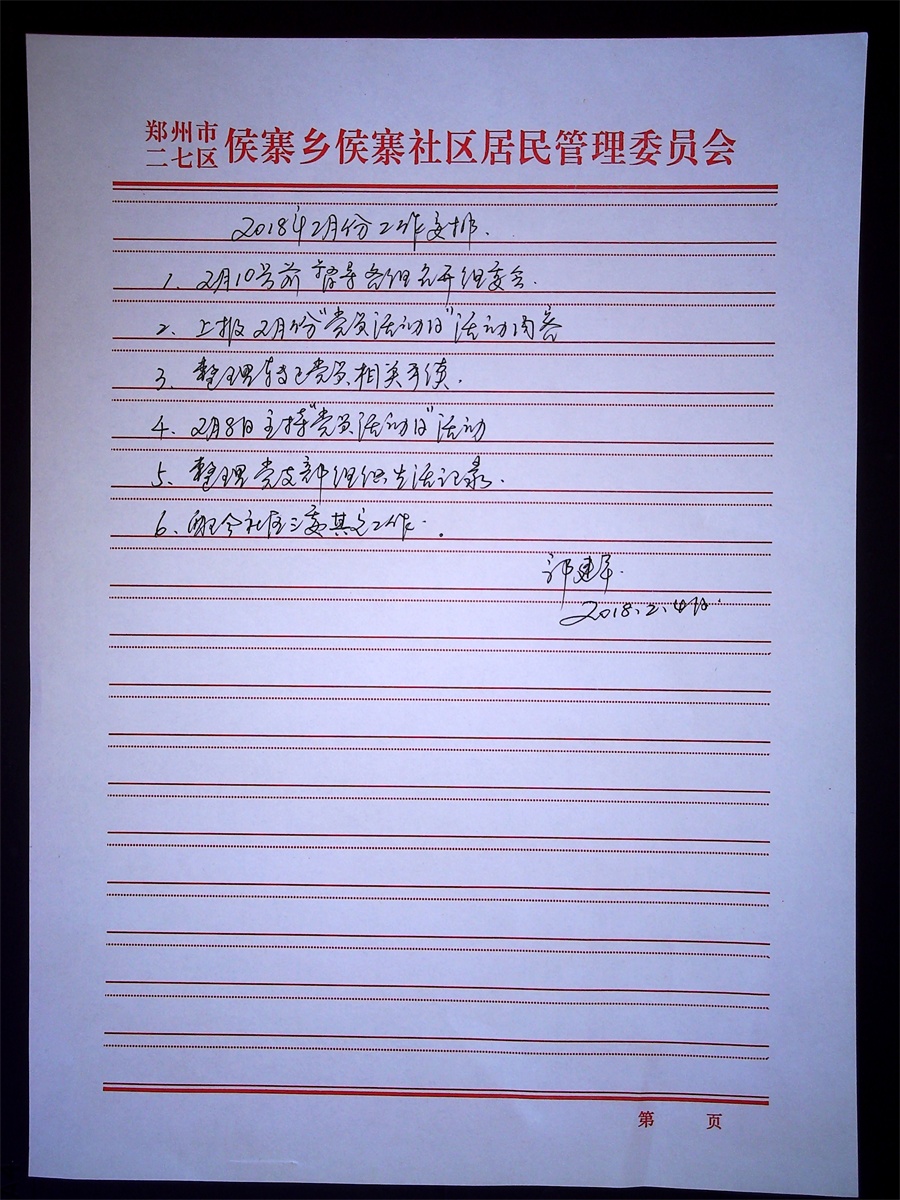 郑州市
二七区 侯寨乡侯寨社区居民管理委员会
2018年2月份工作安排.
1. 2月10号前 指导各组召开组委会.
2. 上报2月份"党员活动日"活动内容
3. 整理转正党员相关手续.
4. 2月8日主持"党员活动日"活动
5. 整理党支部组织生活记录.
6. 配合社区三委其它工作.
建军.
2018.2.
第 页